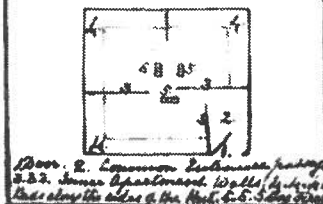 4 4
6 5
3 5 3
3 2
4 1
1 Door. 2. Common Entrance
3.3.3. Inner Apartment Walls, 4.4.4
Beds along the sides of the Hut, 5.5.5